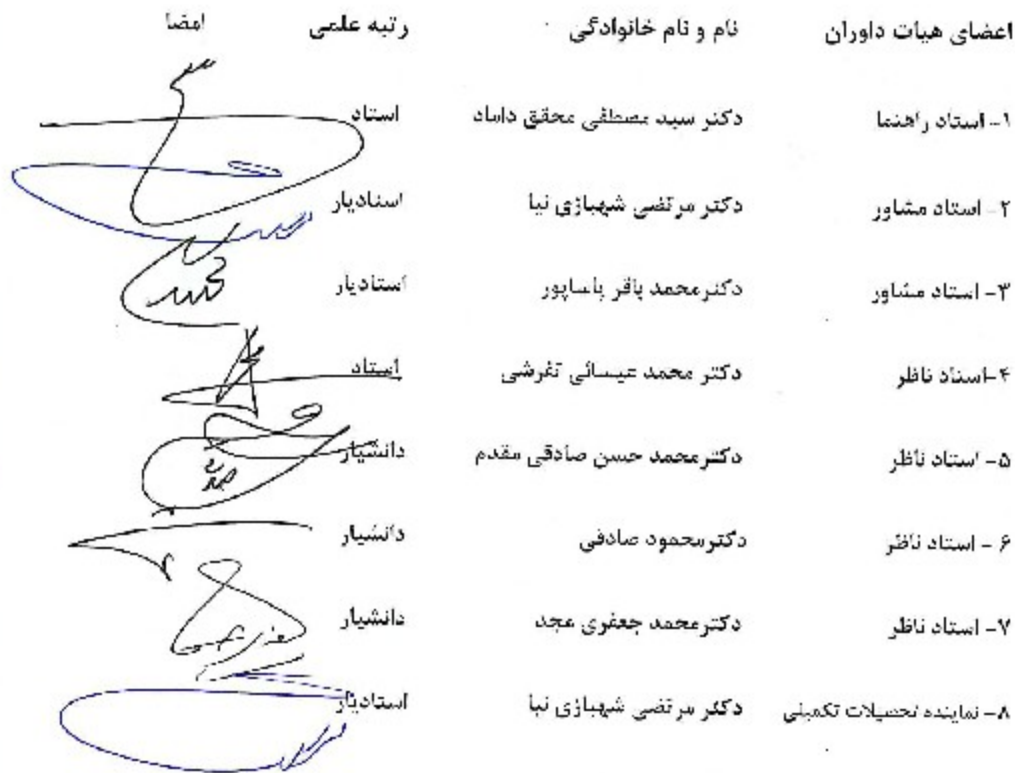 اعضای هیات داوران نام و نام خانوادگی رتبه علمی امضا
۱- استاد راهنما دکتر سید مصطفی محقق داماد استاد
۲- استاد مشاور دکتر مرتضی شهبازی نیا استادیار
۳- استاد مشاور دکترمحمد باقر پارساپور استادیار
۴-استاد ناظر دکتر محمد عیسائی تفرشی استاد
۵- استاد ناظر دکترمحمد حسن صادقی مقدم دانشیار
۶- استاد ناظر دکترمحمود صادقی دانشیار
۷- استاد ناظر دکترمحمد جعفری مجد دانشیار
۸- نماینده تحصیلات تکمیلی دکتر مرتضی شهبازی نیا استادیار